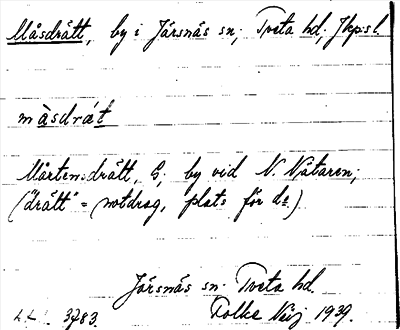 Måsdrätt, by i Järsnäs sn, Tveta hd, Jkps l.
màsdrát
Mårtensdrätt, G, by vid N. Nätaren,
("drätt" = notdrag, plats för do)
Järsnäs sn Tveta hd.
3783. Folke 1939.